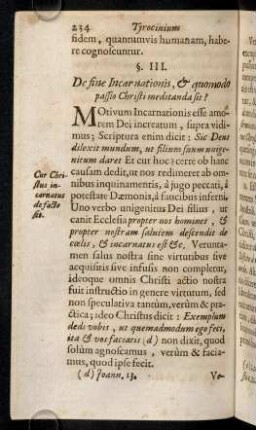 234 Tyrocinium
fidem, quantumvis humanam, habe-
re cognoscuntur.
§. III.
De fine Incarnationis, & quomodo
passio Christi meditanda sit?
MOtivum Incarnationis esse amo-
rem Dei increatum, supra vidi-
mus; Scriptura enim dicit: Sic Deus
dilexit mundum, ut filium suum unige-
nitum daret Et cur hoc? certe ob hanc
causam dedit, ut nos redimeret ab om-
nibus inquinamentis, á jugo peccati, á
potestate Dæmonis, á faucibus inferni.
Uno verbo unigenitus Dei filius, ut
canit Ecclesia propter nos homines, &
propter nostram salutem descendit de
cœlis, & incarnatus est &c. Verunta-
men salus nostra sine virtutibus sive
acquisitis sive infusis non completur,
ideoque omnis Christi actio nostra
fuit instructio in genere virtutum, sed
non speculativa tantùm, verùm & pra-
ctica; ideo Christus dicit: Exemplum
dedi vobis, ut quemadmodum ego feci,
ita & vos faciatis (d) non dixit, quod
solùm agnoscamus, verùm & facia-
mus, quod ipse fecit.
(d) Joann. 13. Ve-
Cur Chri-
stus in-
carnatus
de facto
sit.